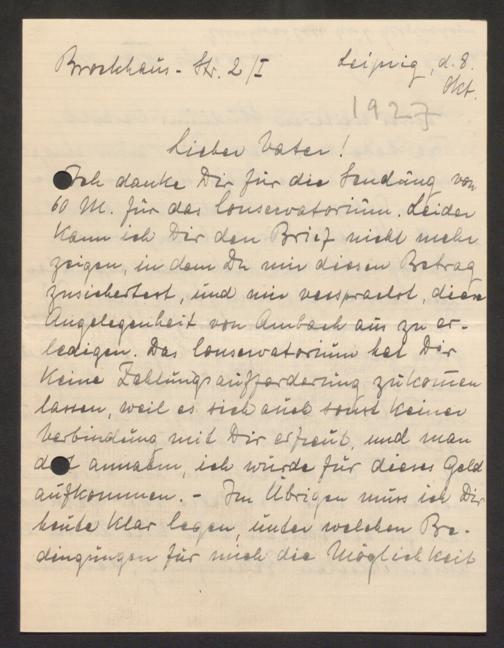 Brockhaus-Str. 2/I Leipzig, d. 8.
Okt.
1927
Lieber Vater!
Ich danke Dir für die Sendung von
60 M. für das Conservatorium. Leider
kann ich Dir den Brief nicht mehr
zeigen, in dem Du mir diesen Betrag
zusichertest, und mir versprachst, diese
Angelegenheit von Ambach aus zu er-
ledigen. Das Conservatorium hat Dir
keine Zahlungsaufforderung zukommen
lassen, weil es sich auch sonst keiner
Verbindung mit Dir erfreut, und man
dort annahm, ich würde für dieses Geld
aufkommen. - Im Übrigen muss ich Dir
heute klar legen, unter welchen Be-
dingungen für mich die Möglichkeit